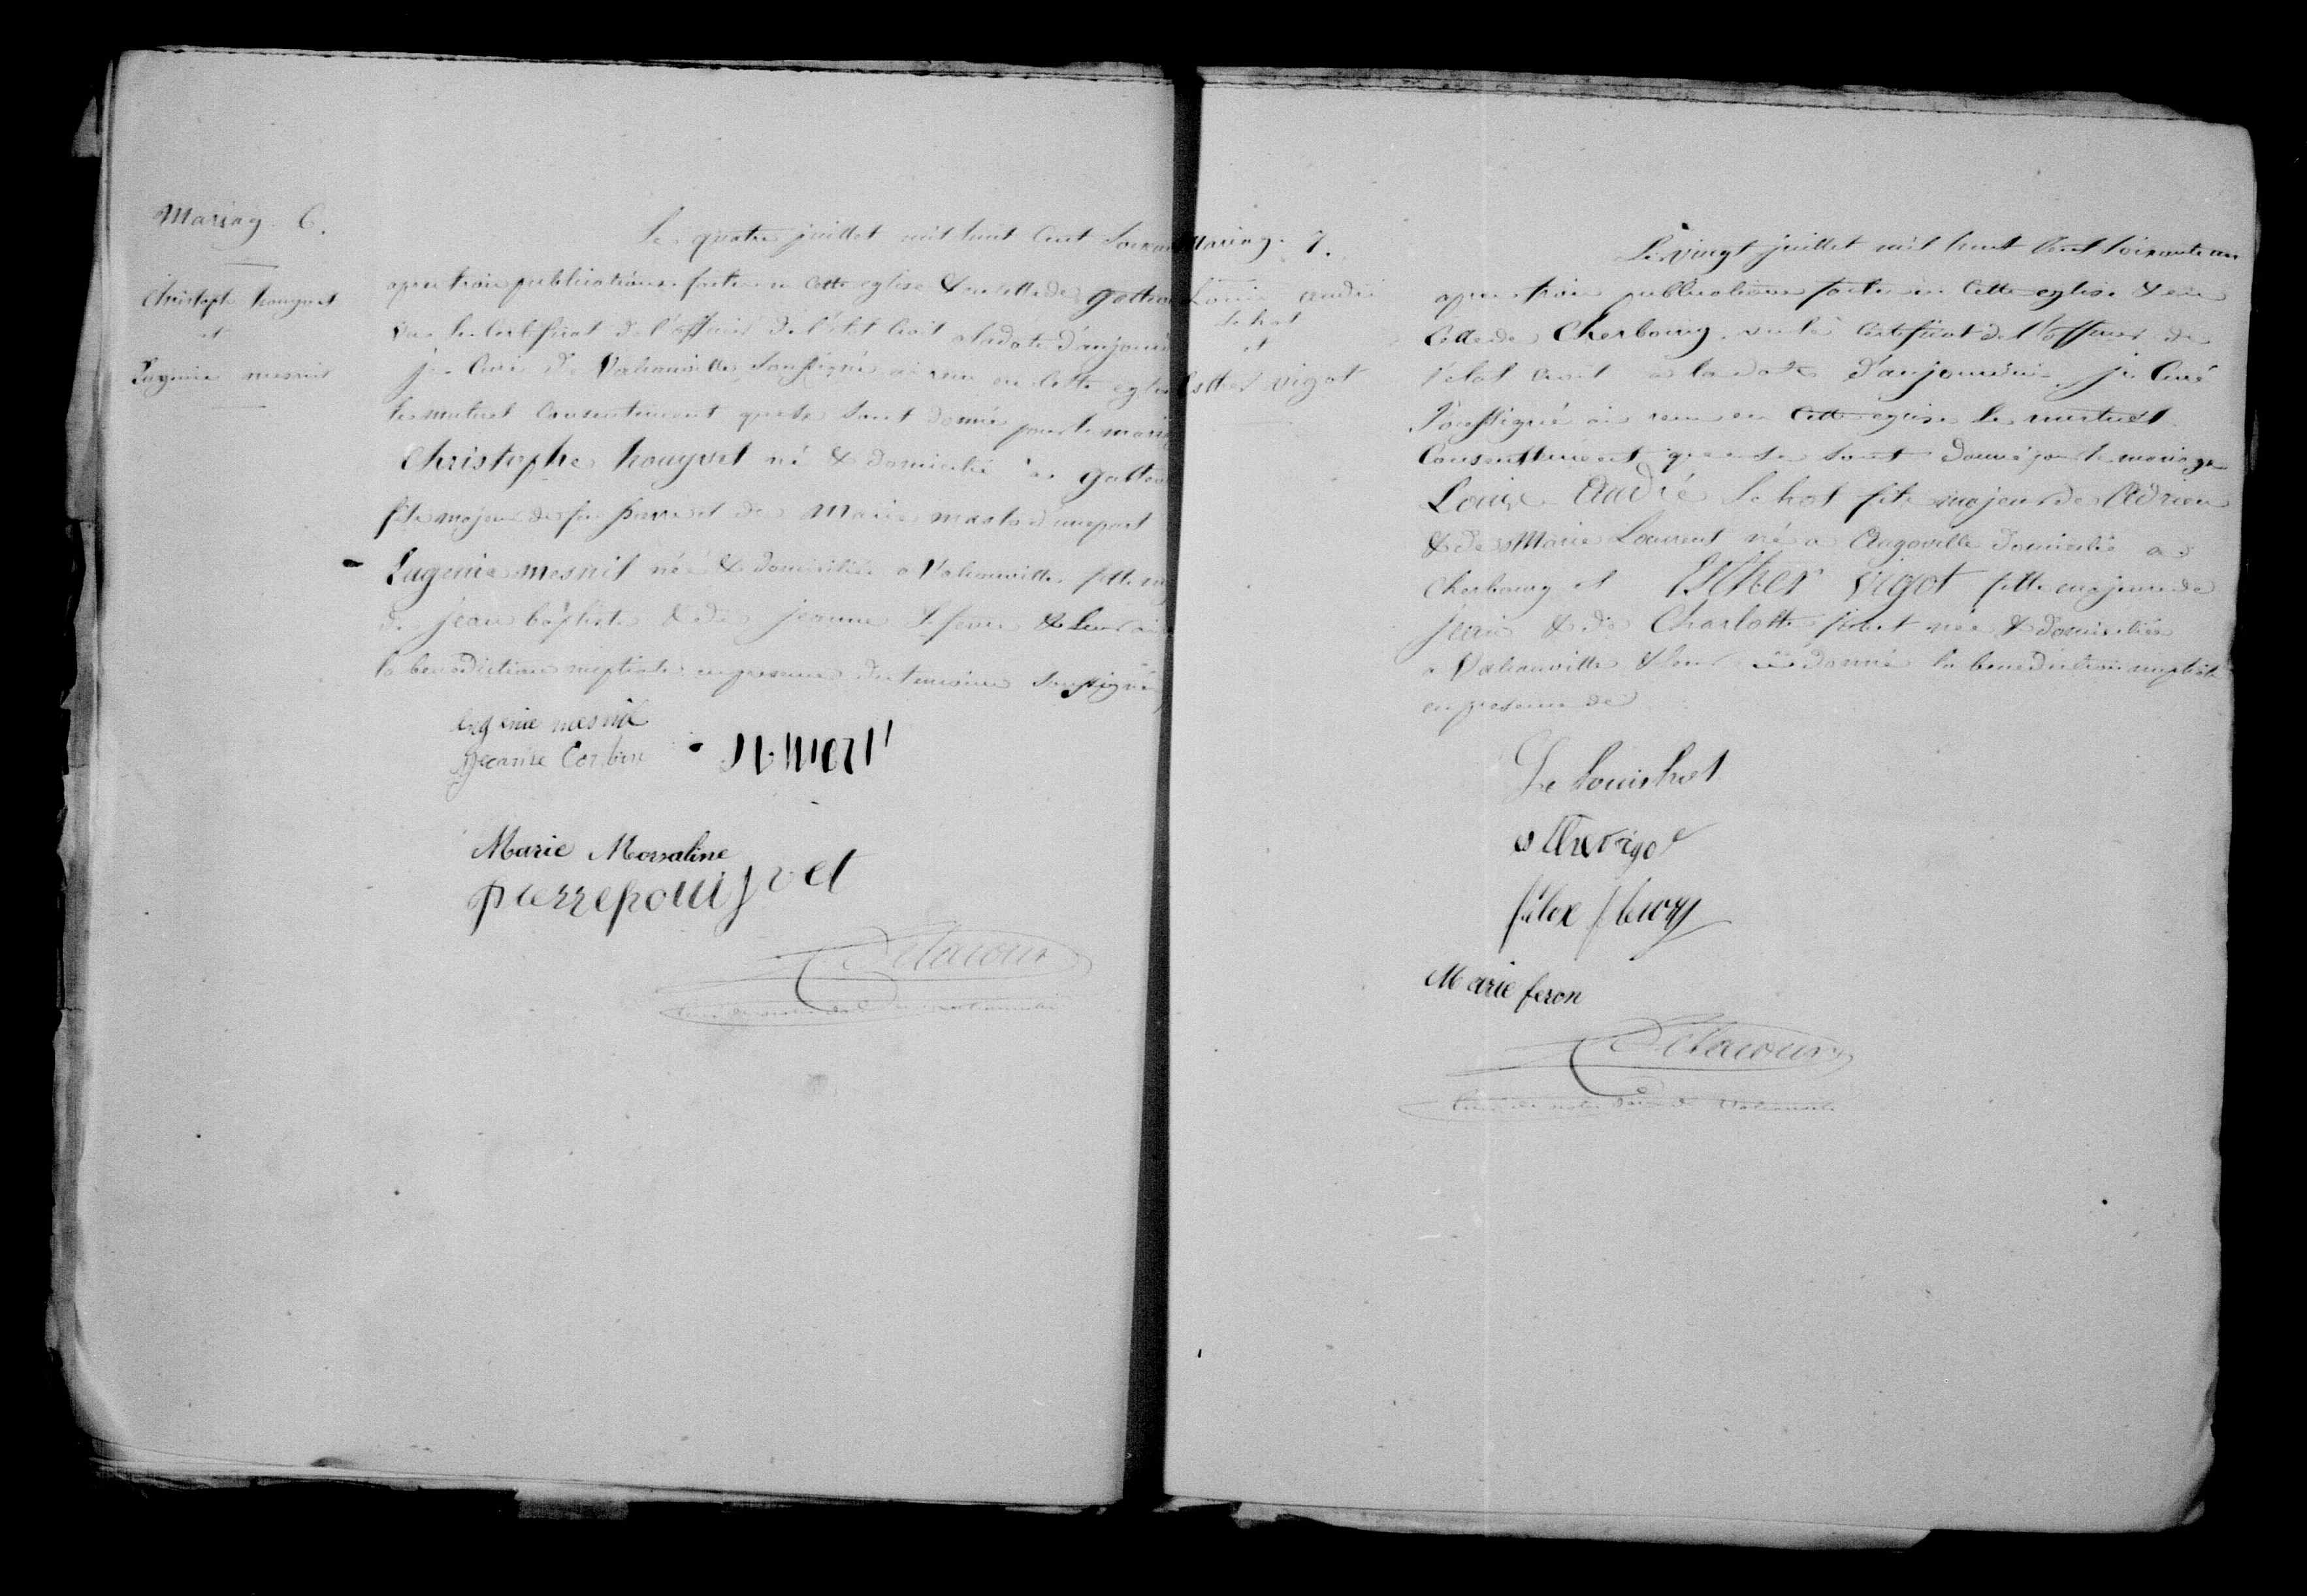 Mariag. 6.
Christophe houyvet
et
Eugenie mesnil
Le quatre juillet mil huit cent soixan
apres trois publications faites en cette eglise & en celle de gatte
vu le certificat de l'officier de l'état civil a la date d'aujour
je Curé de Valcanville soussigné ai reçu en cette eglise
le mutuel consentement que se sont donné pour le maria
Christophe houyvet né & domicilié a gatte
fils majeur de feu pierre et de Marie d'une part
Eugenie mesnil née & domiciliée a Valcanville fille
de jean baptiste & de jeanne & leur ai
la benediction nuptiale en presence des temoins soussignés
eugenie mesnil
Marie Morsaline
pierre houyvet
Delacour
Mariag. 7.
Louis Andié
Lehot
et
Esther Vigot
Le vingt juillet mil huit cent soixante un
apres trois publications faites en cette eglise & en
celle de Cherbourg vu le certificat de l'officier de
l'etat civil a la date d'aujourd'hui, je Curé
soussigné ai reçu en cette eglise le mutuel
consentement que se sont donné pour le mariage
Louis Andié Lehot fils majeur de Adrien
& de Marie Laurent né a Angoville domicilié a
Cherbourg et Esther Vigot fille majeure de
jean & de Charlotte née & domiciliée
a Valcanville & leur ai donné la benediction nuptiale
en presence de
Le Louis hot
esther vigot
félix fleury
Marie feron
Delacour
Curé de notre dame de Valcanville